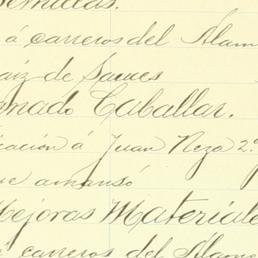 Semillas.
á carreros del Alam
aiz de Sauces
anado Caballar.
icación á Juan Neza 2º
ue amansó
Mejoras Materiale
á carreros del Alame